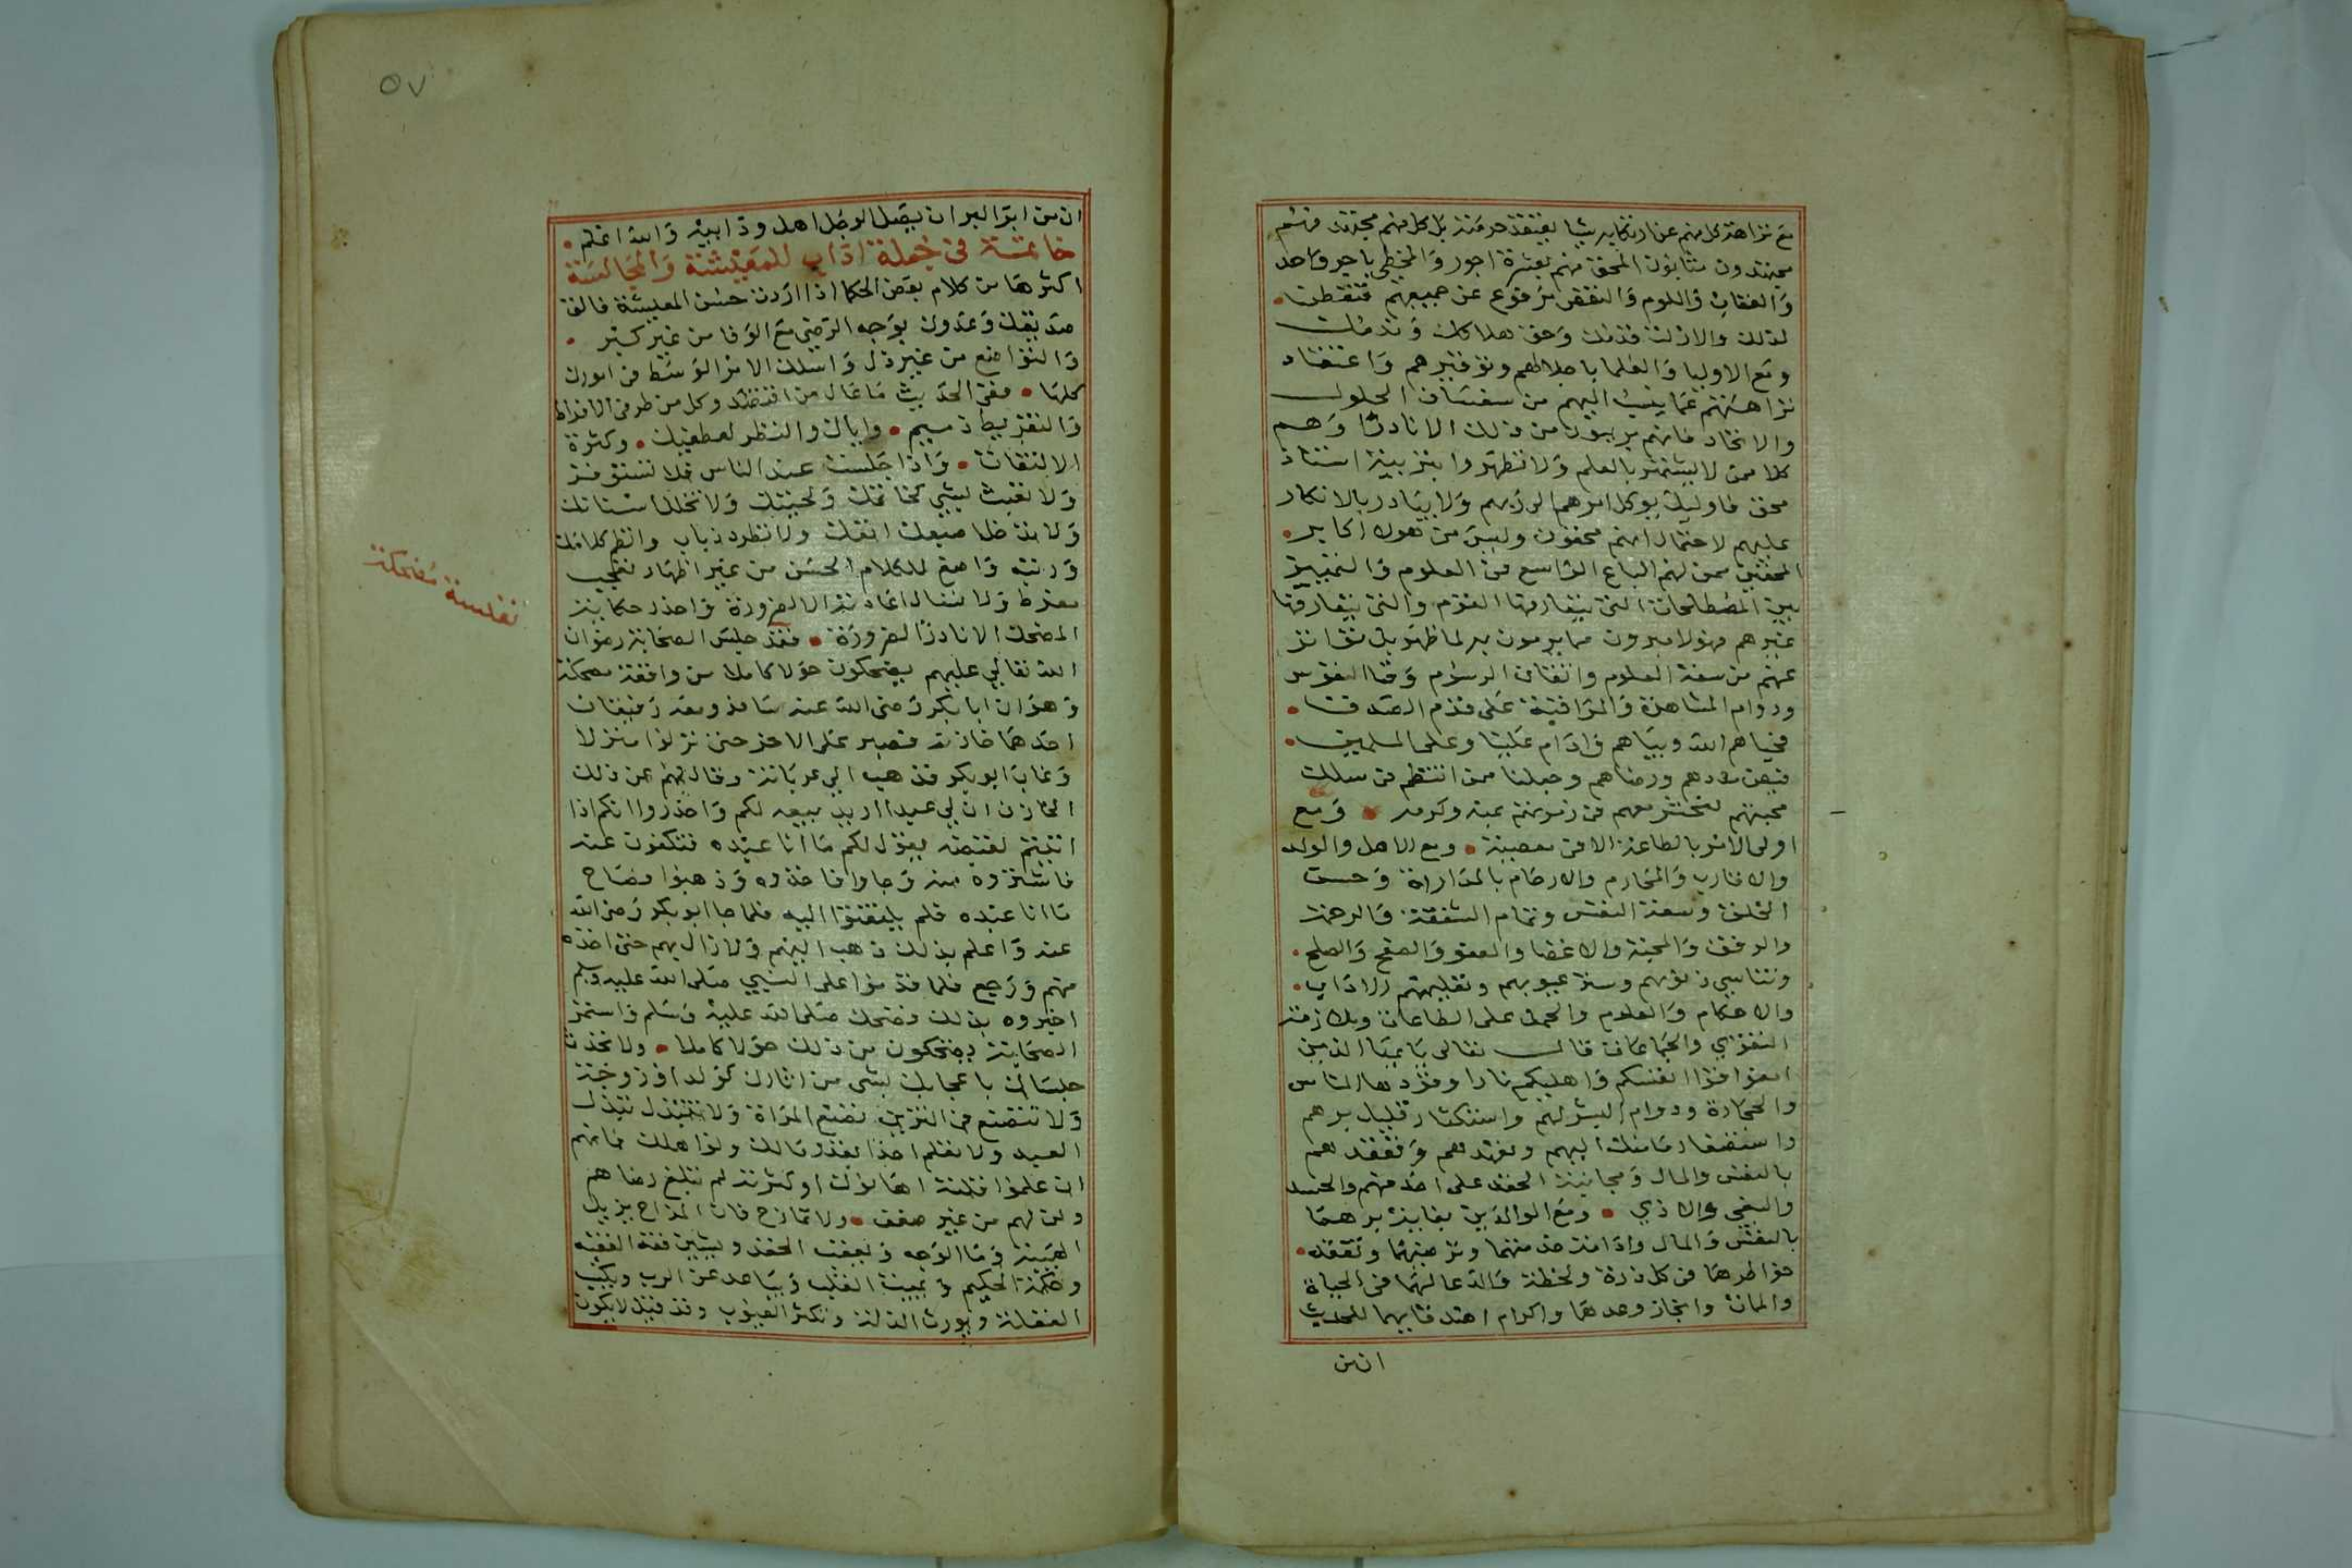 مع نزاهة كل منهم عن ارتكابه شيا يعتقد حرمته بل كل منهم مجتهد فهم
مجتهدون مثابون المحق منهم بعشرة اجور والمخطي باجر واحد
والعقاب واللوم والنقص مرفوع عن جميعهم فتفطن
لذلك والا زلت قدمك وحق هلاكك وندمك
ومع الاوليا والعلما باجلالهم وتوقيرهم واعتقاد
نزاهتهم عما ينسب اليهم من سفساف الحلول
والاتحاد فانهم بريون من ذلك الا نادرا وهم
كلا ممن لا يشتهر بالعلم ولا تطهروا بتربية استاذ
محق فاوليك يوكل امرهم الى ربهم ولا يبادر بالانكار
عليهم لاحتمال انهم محقون وليس من هولا اكابر
المحققين ممن لهم الباع الواسع في العلوم والتمييز
بين المصطلحات التي يتعارفها القوم والتي يتعارفها
غيرهم فهولا مبرون مما يرمون به لما ظهر بل تواتر
عنهم من سعة العلوم واتقان الرسوم وفنا النفوس
ودوام المشاهدة والمراقبة على قدم الصدق
فحياهم الله وبياهم وادام علينا وعلى المسلمين
فيض مددهم ورضاهم وجعلنا ممن انتظم في سلك
محبتهم لنحشر معهم في زمرتهم بمنه وكرمه ومع
اولى الامر بالطاعة الا في معصية ومع الاهل والولد
والاقارب والمحارم والارحام بالمداراة وحسن
الخلق وسعة النفس وتمام الشفقة والرحمة
والرفق والمحبة والاغضا والعفو والصفح والصلح
وتناسي زللهم وستر عيوبهم وتعليمهم الاداب
والاحكام والعلوم والحمل على الطاعات وملازمة
التقوى والجماعات قال تعالى يا ايها الذين
امنوا قوا انفسكم واهليكم نارا وقودها الناس
والحجارة ودوام البشر لهم واستكثار قليل برهم
واستصغار مامنك اليهم وتعهدهم وتفقدهم
بالنفس والمال ومجانبة الحقد على احد منهم والحسد
والبغي والاذي ومع الوالدين بغاية برهما
بالنفس والمال وادامة خدمتهما وترضيهما وتفقد
خواطرهما في كل ذرة ولحظة والدعا لهما في الحياة
والممات وانجاز وعدهما واكرام اصدقايهما للحديث
ان من
٥٧
ان من ابر البر ان يصل الرجل اهل ود ابيه والله اعلم
خاتمة في جملة اداب للمعيشة والمجالسة
اكثرها من كلام بعض الحكما اذا اردت حسن المعيشة فالق
صديقك وعدوك بوجه الرضى مع الوفا من غير كبر
والتواضع من غير ذل واسلك الامر الوسط في امورك
كلها ففي الحديث ما عال من اقتصد وكل من طرفى الافراط
والتفريط ذميم واياك والنظر لعطفيك وكثرة
الالتفات واذا جلست عند الناس فلا تستوفز
ولا تعبث بشي كخاتمك ولحيتك ولا تخلل اسنانك
ولا تدخل اصبعك انفك ولا تطرد ذباب وانظم كلامك
ورتبه واصغ للكلام الحسن من غير اظهار تعجب
مفرط ولا تسال اعادته الا لضرورة واحذر حكاية
المضحك الا نادرا لضرورة فقد جلس الصحابة رضوان
الله تعالى عليهم يضحكون حولا كاملا من واقعة مضحكة
وهو ان ابا بكر رضى الله عنه سافر ومعه رفيقان
احدهما خازنه فتصبر على الاخر حتى نزلوا منزلا
وغاب ابو بكر فذهب الي عربانه وقال لهم عن ذلك
الخازن ان لي عبدا اريد بيعه لكم واحذروا انكم اذا
اتيتم لقبضه يقول لكم ما انا عبده فتكفون عنه
فاشتروه منه وجاوا فاخذوه وذهبوا فصاح
ما انا عبده فلم يلتفتوا اليه فلما جا ابو بكر رضى الله
عنه واعلم بذلك ذهب اليهم ولا زال بهم حتى اخذه
منهم ورجع فلما قدموا على النبي صلى الله عليه وسلم
اخبروه بذلك فضحك صلى الله عليه وسلم واستمر
الصحابة يضحكون من ذلك حولا كاملا ولا تحدث
جلساك باعجابك بشي من اثارك كولد او زوجة
ولا تتصنع في التزين تصنع المراة ولا تتبذل تبذل
العبد ولا تعلم احدا بقدر مالك ولو اهلك فانهم
ان علموا قلته اهانوك او كثرته لم تبلغ رضاهم
ولن لهم من غير ضعف ولا تمازح فان المزاح يزيل
الهيبة وما الوجه ويعقب الحقد ويشين فقه الفقيه
وحكمة الحكيم ويميت القلب ويباعد عن الرب ويكسب
الغفلة ويورث الذلة وتكثر العيوب وقد قيل لا يكون